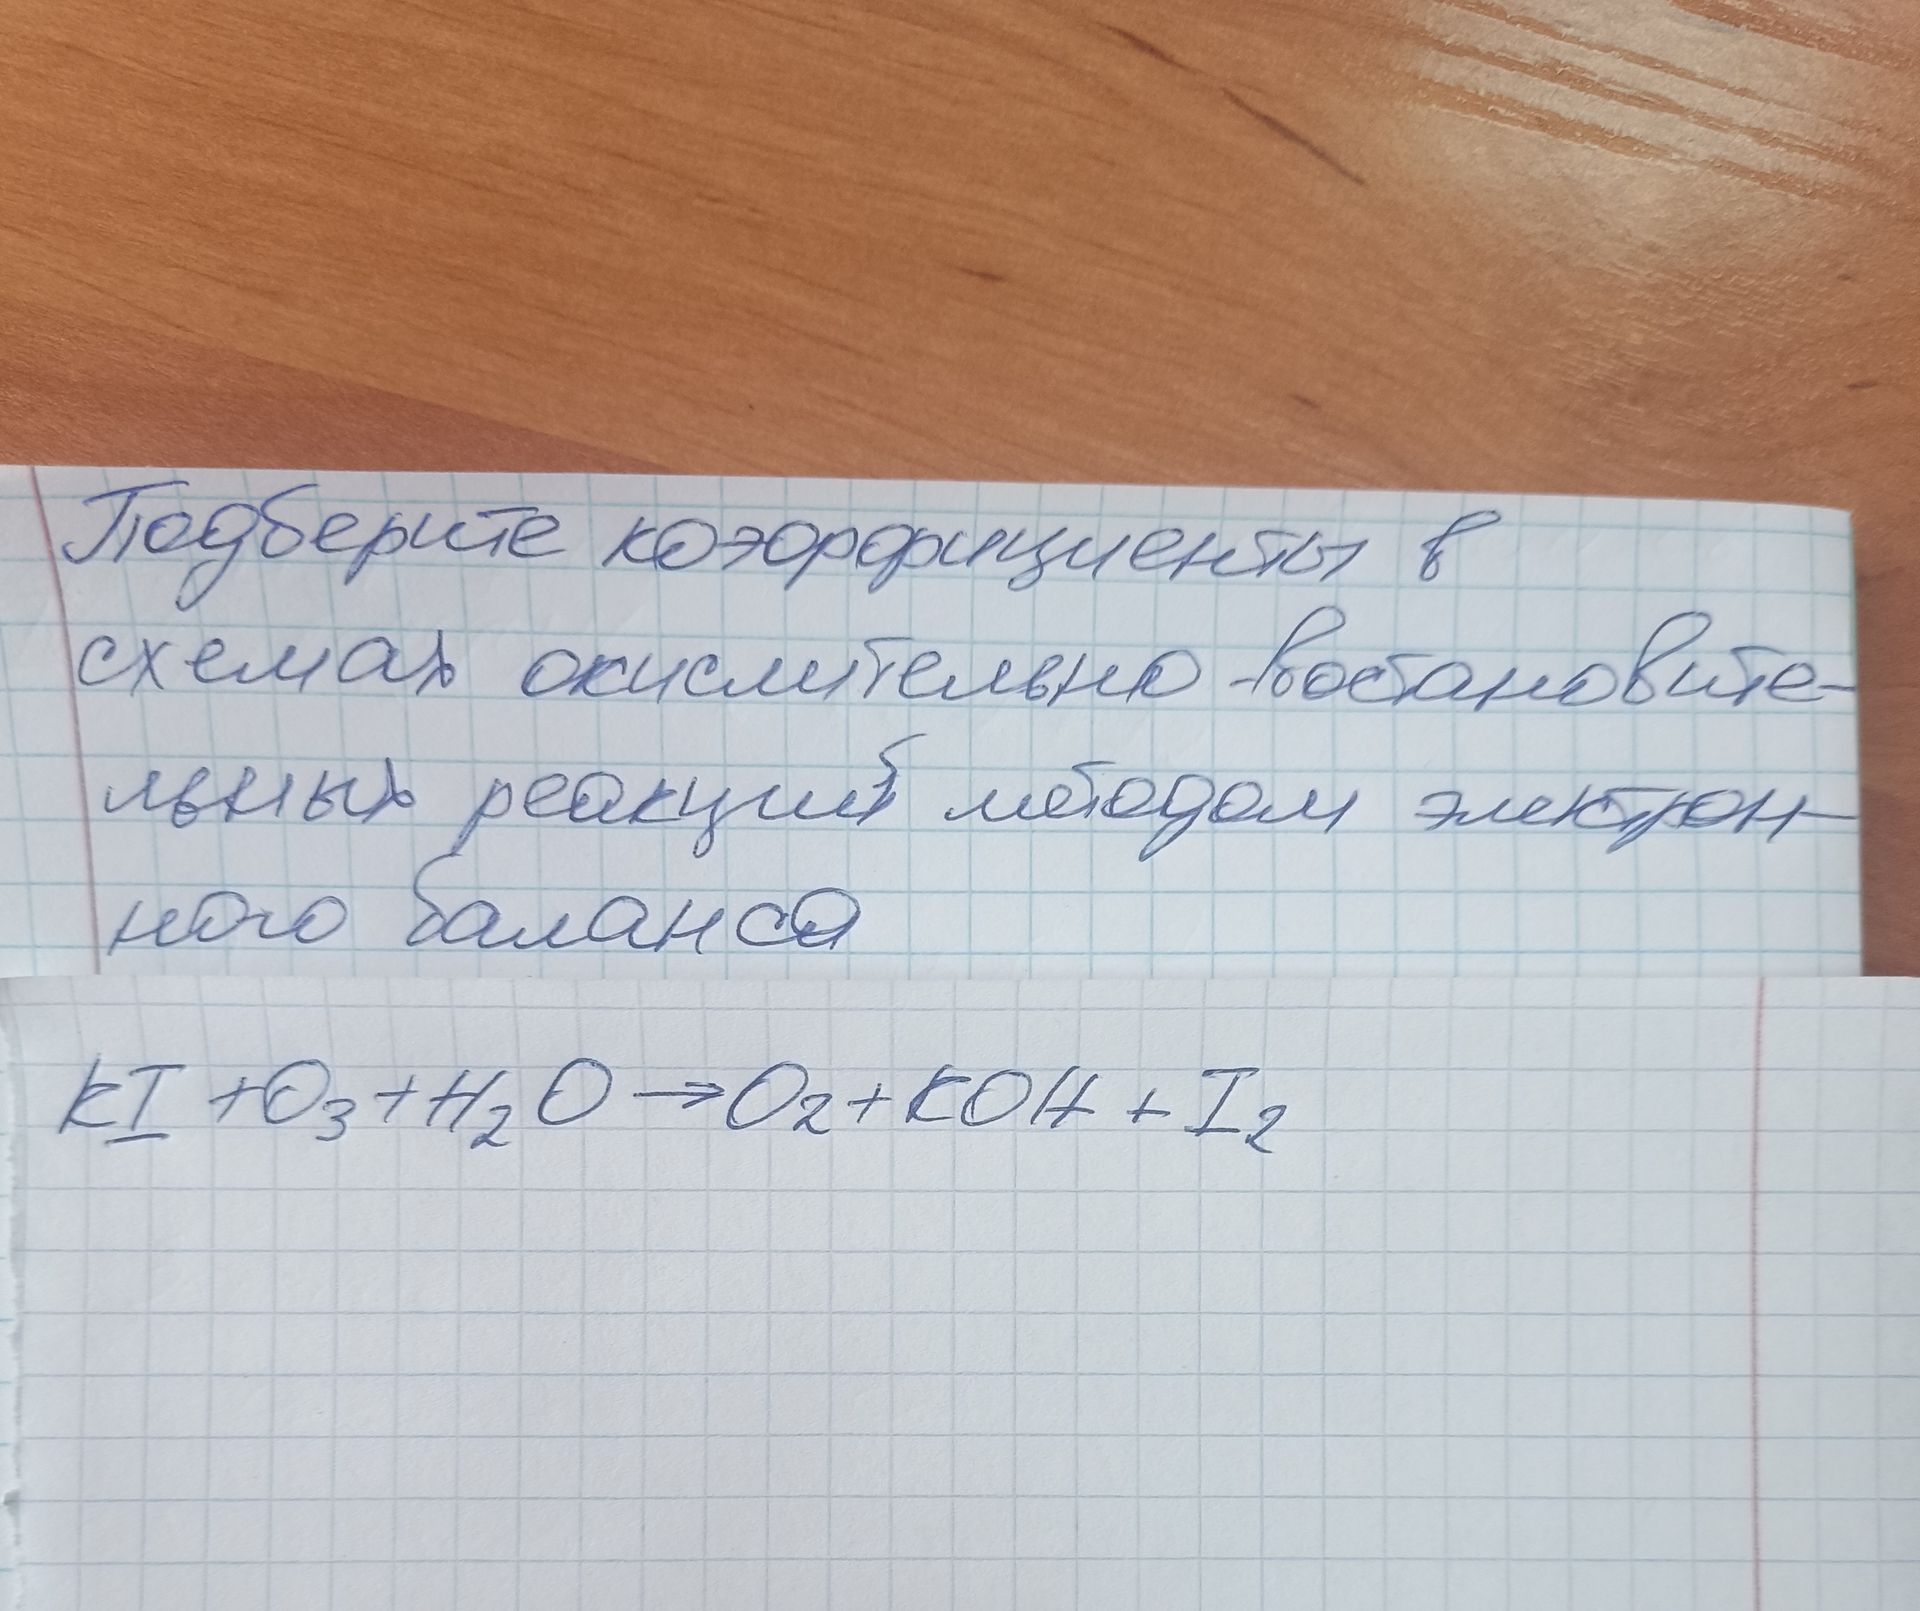 Подберите коэффициенты в
схемах окислительно-востановите-
льных реакций методом электрон-
ного баланса
KI + O₃ + H₂O → O₂ + KOH + I₂